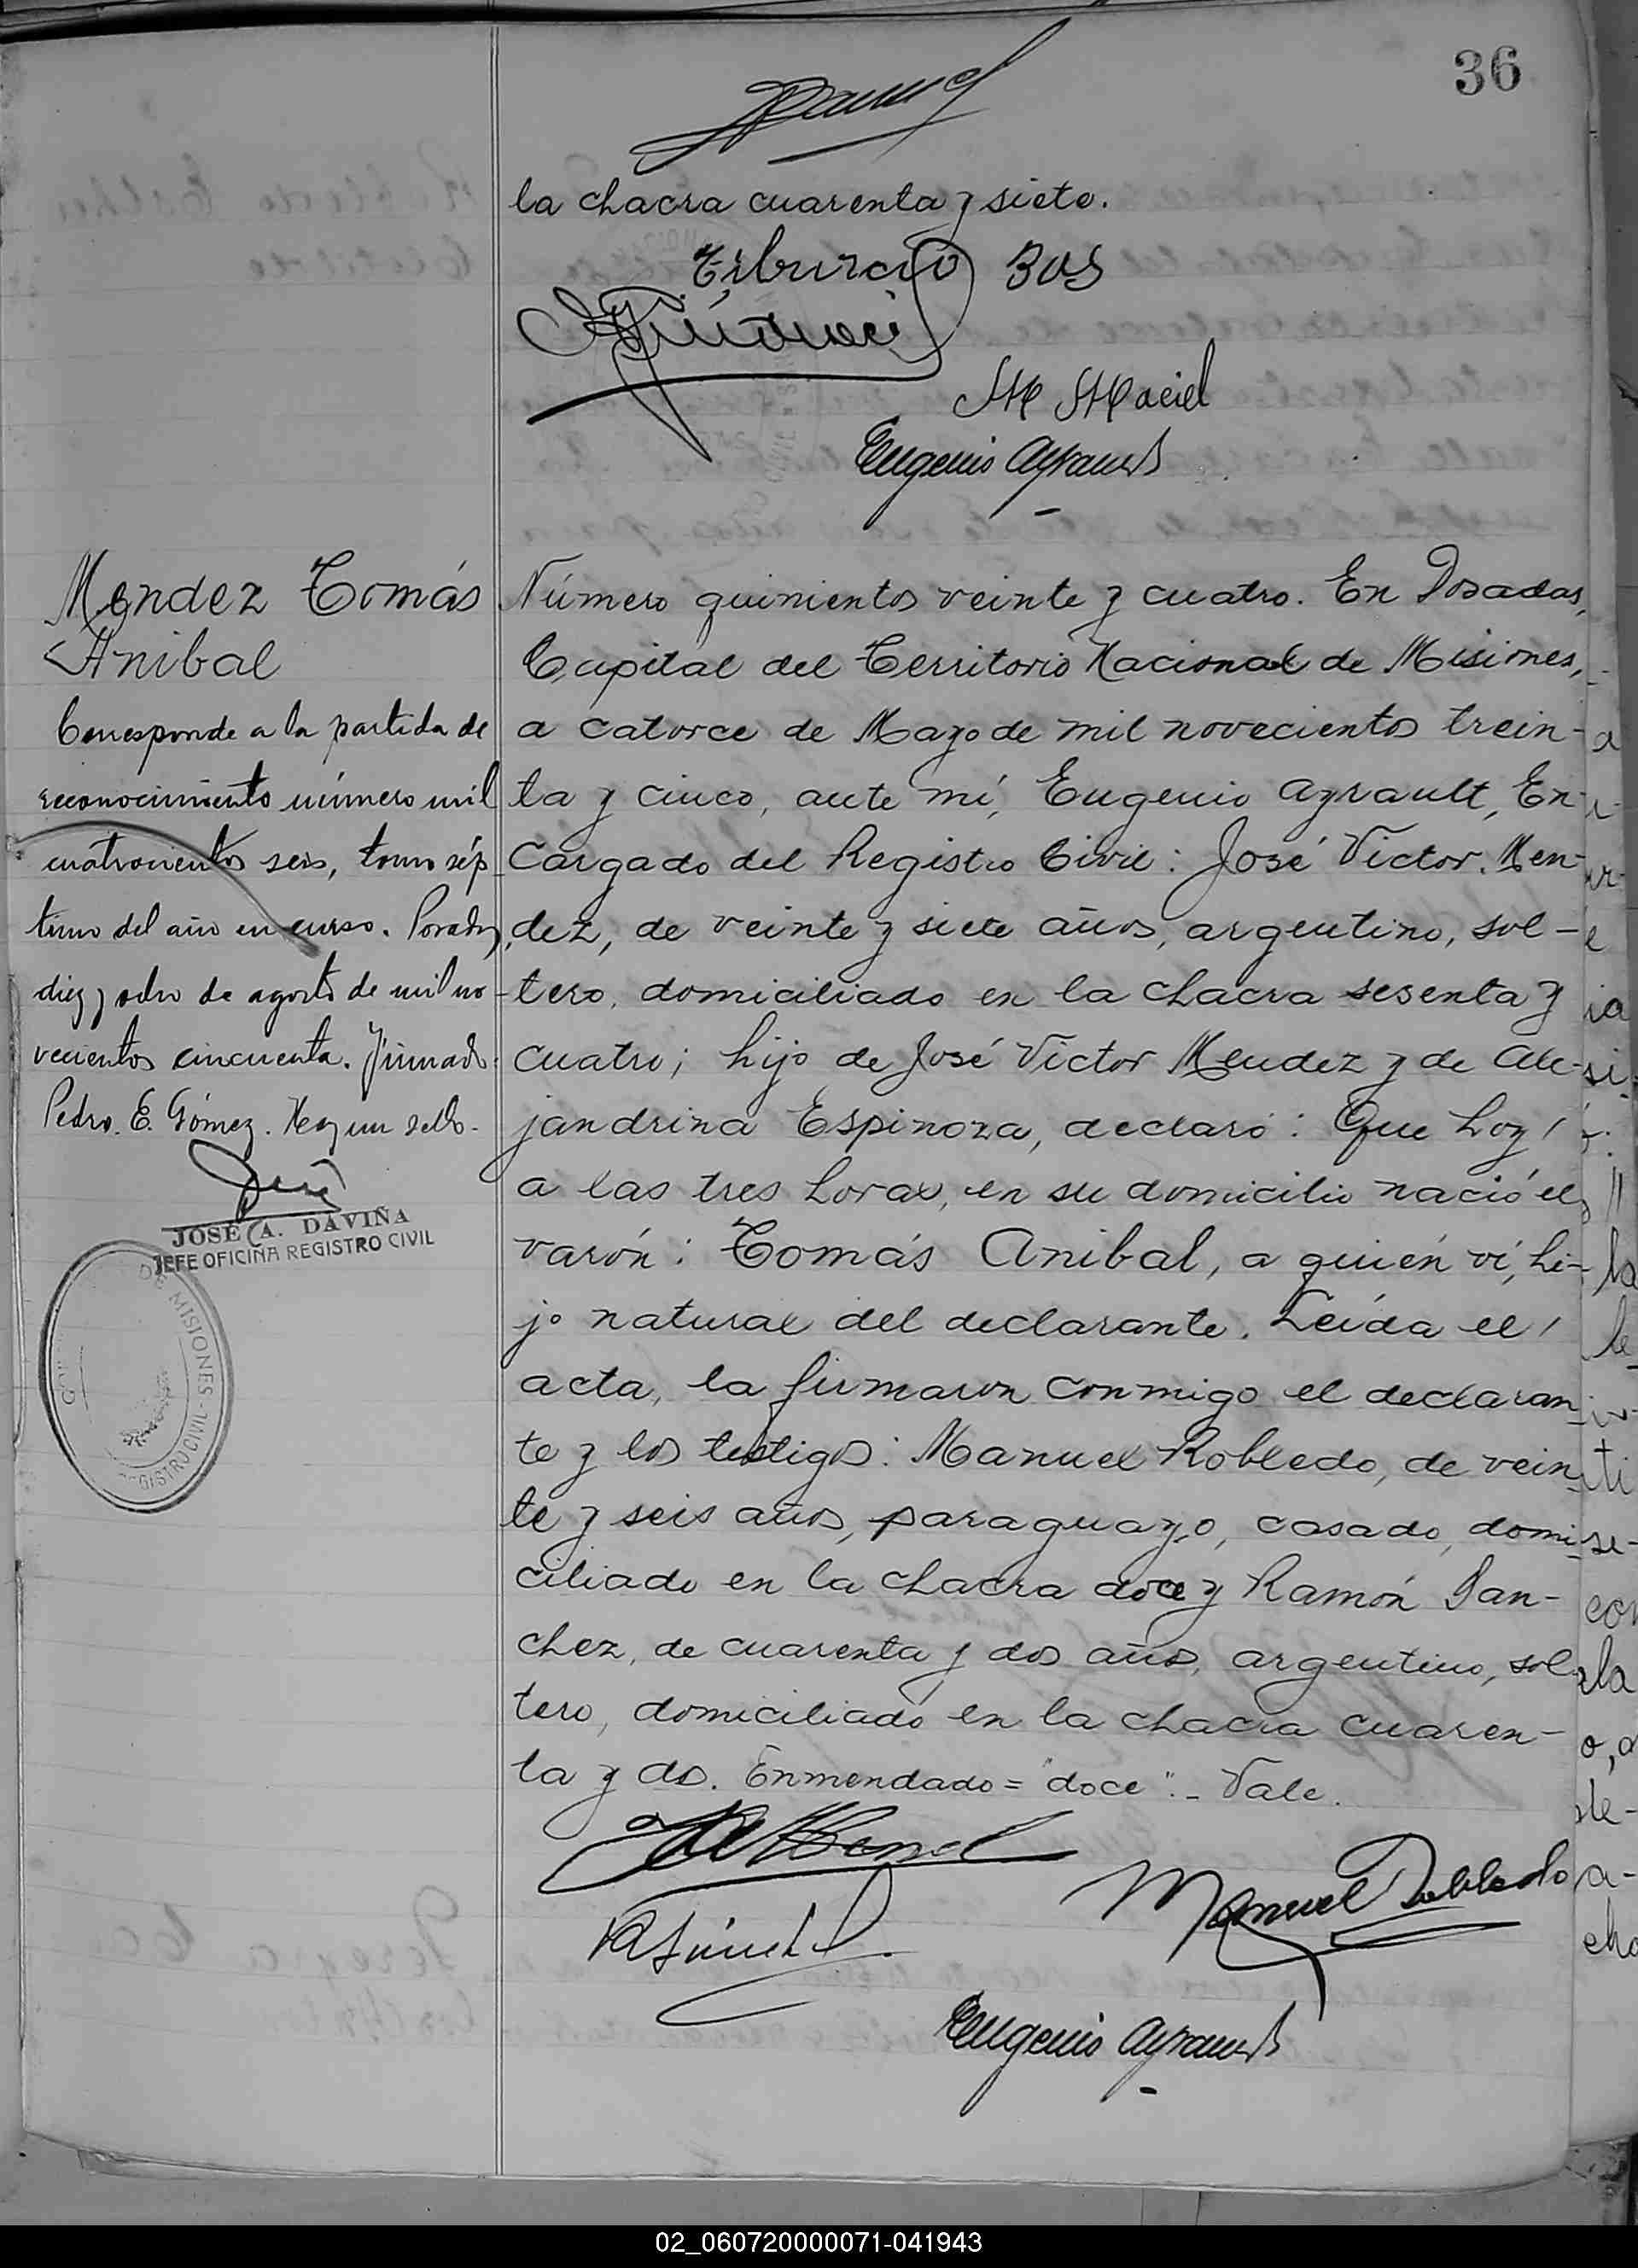 36
la chacra cuarenta y siete.
Tiburcio Bos
M Maciel
Eugenio Ayrault
Mendez Tomás
Anibal
Corresponde a la partida de
reconocimiento número mil
cuatrocientos seis, tomo sép
timo del año en curso. Posadas,
diez y ocho de agosto de mil no
vecientos cincuenta. Firmado:
Pedro. E. Gómez. Hay un sello.
JOSE A. DAVIÑA
JEFE OFICINA REGISTRO CIVIL
DE MISIONES - REGISTRO CIVIL
Número quinientos veinte y cuatro. En Posadas,
Capital del Territorio Nacional de Misiones,
a catorce de Mayo de mil novecientos trein-
ta y cinco, ante mí, Eugenio Ayrault, En-
cargado del Registro Civil: José Víctor. Men-
dez, de veinte y siete años, argentino, sol-
tero, domiciliado en la chacra sesenta y
cuatro; hijo de José Víctor Mendez y de Ale-
jandrina Espinoza, declaró: Que hoy
a las tres horas, en su domicilio nació el
varón: Tomás Anibal, a quién ví, hi-
jo natural del declarante. Leída el
acta, la firmaron conmigo el declaran
te y los testigos: Manuel Robledo, de vein
te y seis años, paraguayo, casado, domi-
ciliado en la chacra doce y Ramón San-
chez, de cuarenta y dos años, argentino, sol
tero, domiciliado en la chacra cuaren-
ta y dos. Enmendado = "doce".- Vale.
Manuel Robledo
Eugenio Ayrault
02_060720000071-041943